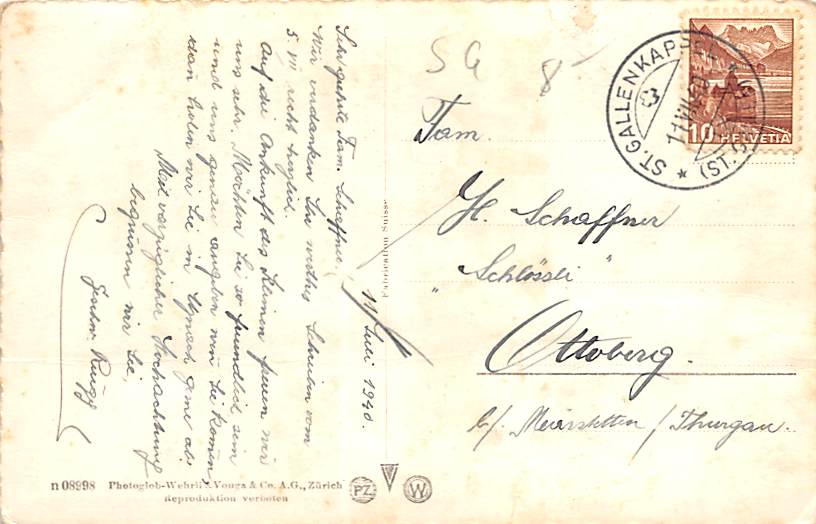 11 Juli 1940.
Sehr geehrte Fam. Schaffner,
Wir verdanken Ihr wertes Schreiben vom
5. VII recht herzlich.
Auf die Ankunft des Kleinen freuen wir
uns sehr. Möchten Sie so freundlich sein
und uns genau angeben wan Sie komen,
dan holen wir Sie in Uznach gerne ab.
Mit vorzüglicher Hochachtung
begrüssen wir Sie,
Rüegg
SG
8
Fam.
H. Schaffner
„Schlössli"
Ottoberg.
b/. Märstetten / Thurgau.
ST. GALLENKAPPEL
(ST.
10 HELVETIA
Fabrication Suisse
n 08998 Photoglob-Wehrli & Vouga & Co. A.G., Zürich
Reproduktion verboten
PZ
W